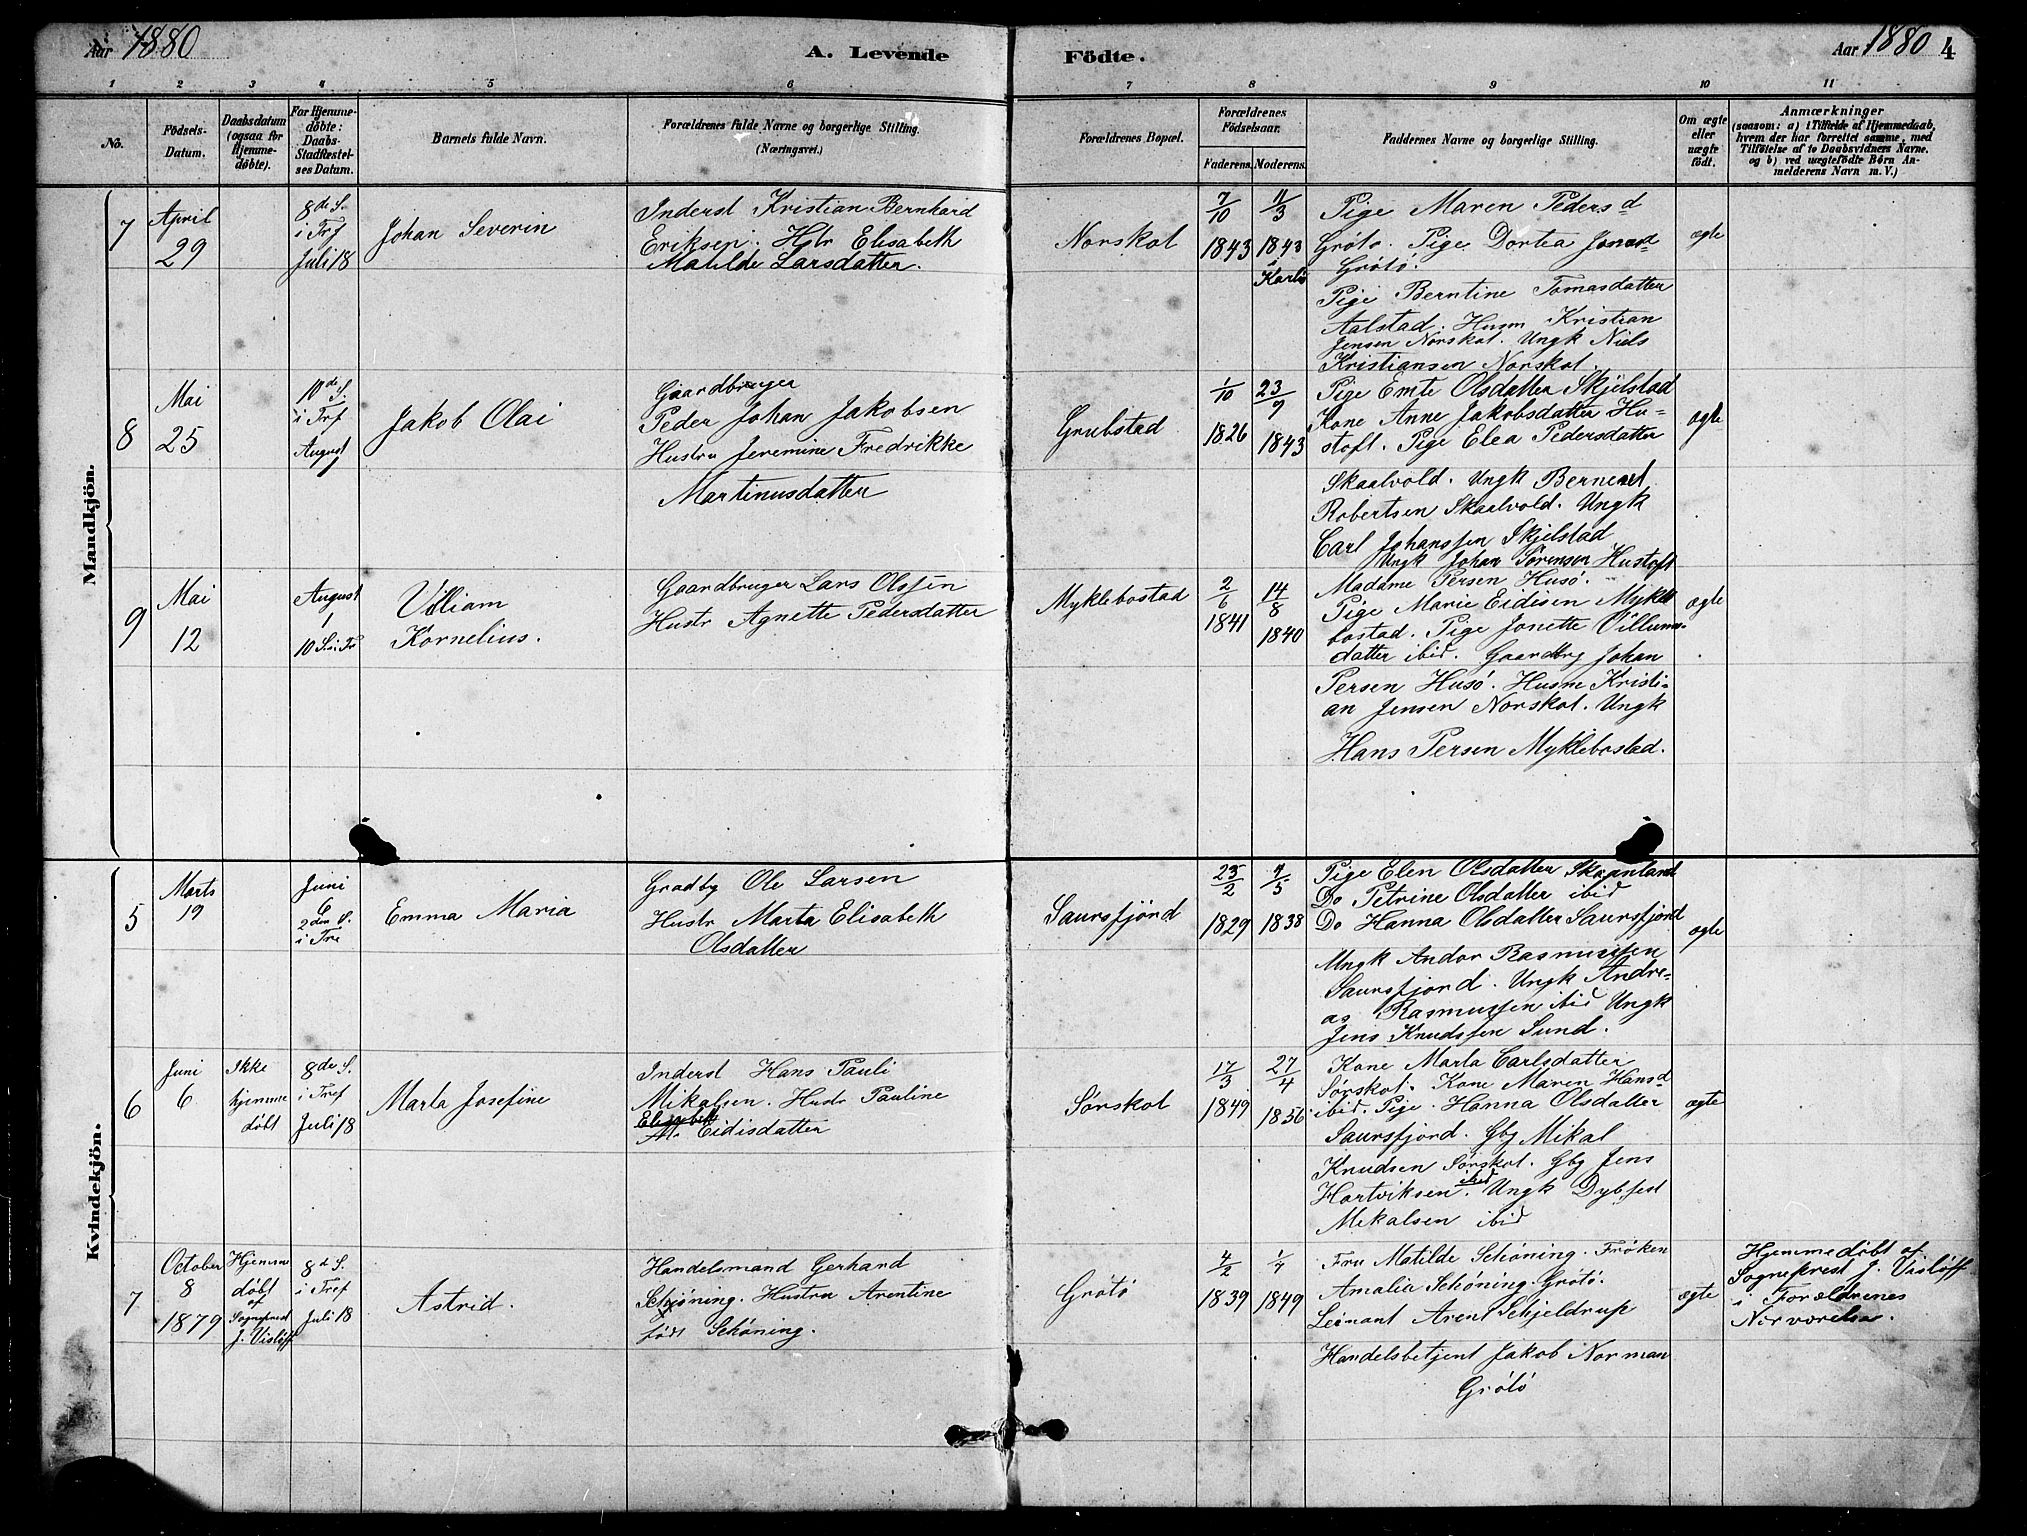 Aar 1880
A. Levende
Födte.
Aar 1880 4
1 2 3 4 5 6 7 8 9 10 11
No.
Födsels-
Datum.
Daabsdatum
(ogsaa for
Hjemme-
døbte).
For Hjemme-
döbte:
Daabs-
Stadfæstel-
ses Datum.
Barnets fulde Navn.
Forældrenes fulde Navne og borgerlige Stilling.
(Næringsvei.)
Forældrenes Bopæl.
Forældrenes
Födselsaar.
Faderens. Moderens.
Faddernes Navne og borgerlige Stilling.
Om ægte
eller
uægte
født.
Anmærkninger
(saasom: a) i Tilfælde af Hjemmedaab,
hvem der har forrettet samme, med
Tilföielse af to Daabsvidners Navne,
og b) ved uægtefödte Börn An-
melderens Navn m. V.)
Mandkjön.
7
April
29
8de S.
i Tref
Juli 18
Johan Severin
Inderst Kristian Bernhard
Eriksen. Hstr Elisabeth
Matilde Larsdatter.
Norskot
7/10
1843
11/3
1843
i
Karlsø
Pige Maren Pedersd
Grøtø. Pige Dortea Jonasd
Grøtø.
Pige Berntine Tomasdatter
Aalstad. Husm Kristian
Jensen Norskot. Ungk Niels
Kristiansen Norskot.
ægte
8
Mai
25
10de S.
i Tref
August
1
Jakob Olai
Gaardbruger
Peder Johan Jakobsen
Hustru Jeremine Fredrikke
Martinusdatter
Grubstad
1/10
1826
23/9
1843
Pige Emte Olsdatter Skjelstad
Kone Anne Jakobsdatter Hu-
stoft. Pige Elea Pedersdatter
Skaalvold. Ungk Bernert
Robertsen Skaalvold. Ungk
Carl Johanssen Skjelstad
Ungk Johan Sørensen Hustoft
ægte
9
Mai
12
August
1
10 S. i Tr
Villiam
Kornelius.
Gaardbruger Lars Olssen
Hustr Agnette Pedersdatter
Myklebostad
2/6
1841
14/8
1840
Madame Persen Husø.
Pige Marie Eidisen Mykle
bostad. Pige Jonette Villums-
datter ibid. Gaardbrg Johan
Persen Husø. Husm Kristi-
an Jensen Norskot. Ungk
Hans Persen Myklebostad.
ægte
Kvindekjön.
5
Marts
19
Juni
6
2den S.
i Tre
Emma Maria
Gradbg Ole Larsen
Hustr Marta Elisabeth
Olsdatter
Saursfjörd
23/2
1829
7/5
1838
Pige Elen Olsdatter Skaanland
Do Petrine Olsdatter ibid
Do Hanna Olsdatter Saursfjord
Ungk Andor Rasmussen
Saursfjord. Ungk Andre-
as Rasmussen ibid Ungk
Jens Knudssen Sund.
ægte
6
Juni
6
Ikke
hjemme
døbt
8de S.
i Tref
Juli 18
Marta Josefine
Inderst Hans Pauli
Mikalsen. Hustr Pauline
Elisabeth
Eidisdatter
Sørskot
17/3
1849
27/4
1856
Kone Marta Carlsdatter
Sørskot. Kone Maren Hansd
ibid. Pige. Hanna Olsdatter
Saursfjord. Gbg Mikal
Knudsen Sørskot. Gbg Jens
Hartviksen ibid. Ungk Dybfest
Mikalsen ibid
ægte
7
October
8
1879
Hjemme
døbt
af
Sogneprest
J. Visløff
8de S.
i Tref
Juli 18
Astrid.
Handelsmand Gerhard
Schjöning. Hustru Arentine
født Schöning.
Grötö
4/2
1839
1/4
1849
Fru Matilde Schöning. Frøken
Amalia Schöning Grötö.
Leönant Arent Schjeldrup
Handelsbetjent Jakob Norman
Grötö
ægte
Hjemmedøbt af
Sogneprest J. Visløff
i Forældrenes
Nærværelse.